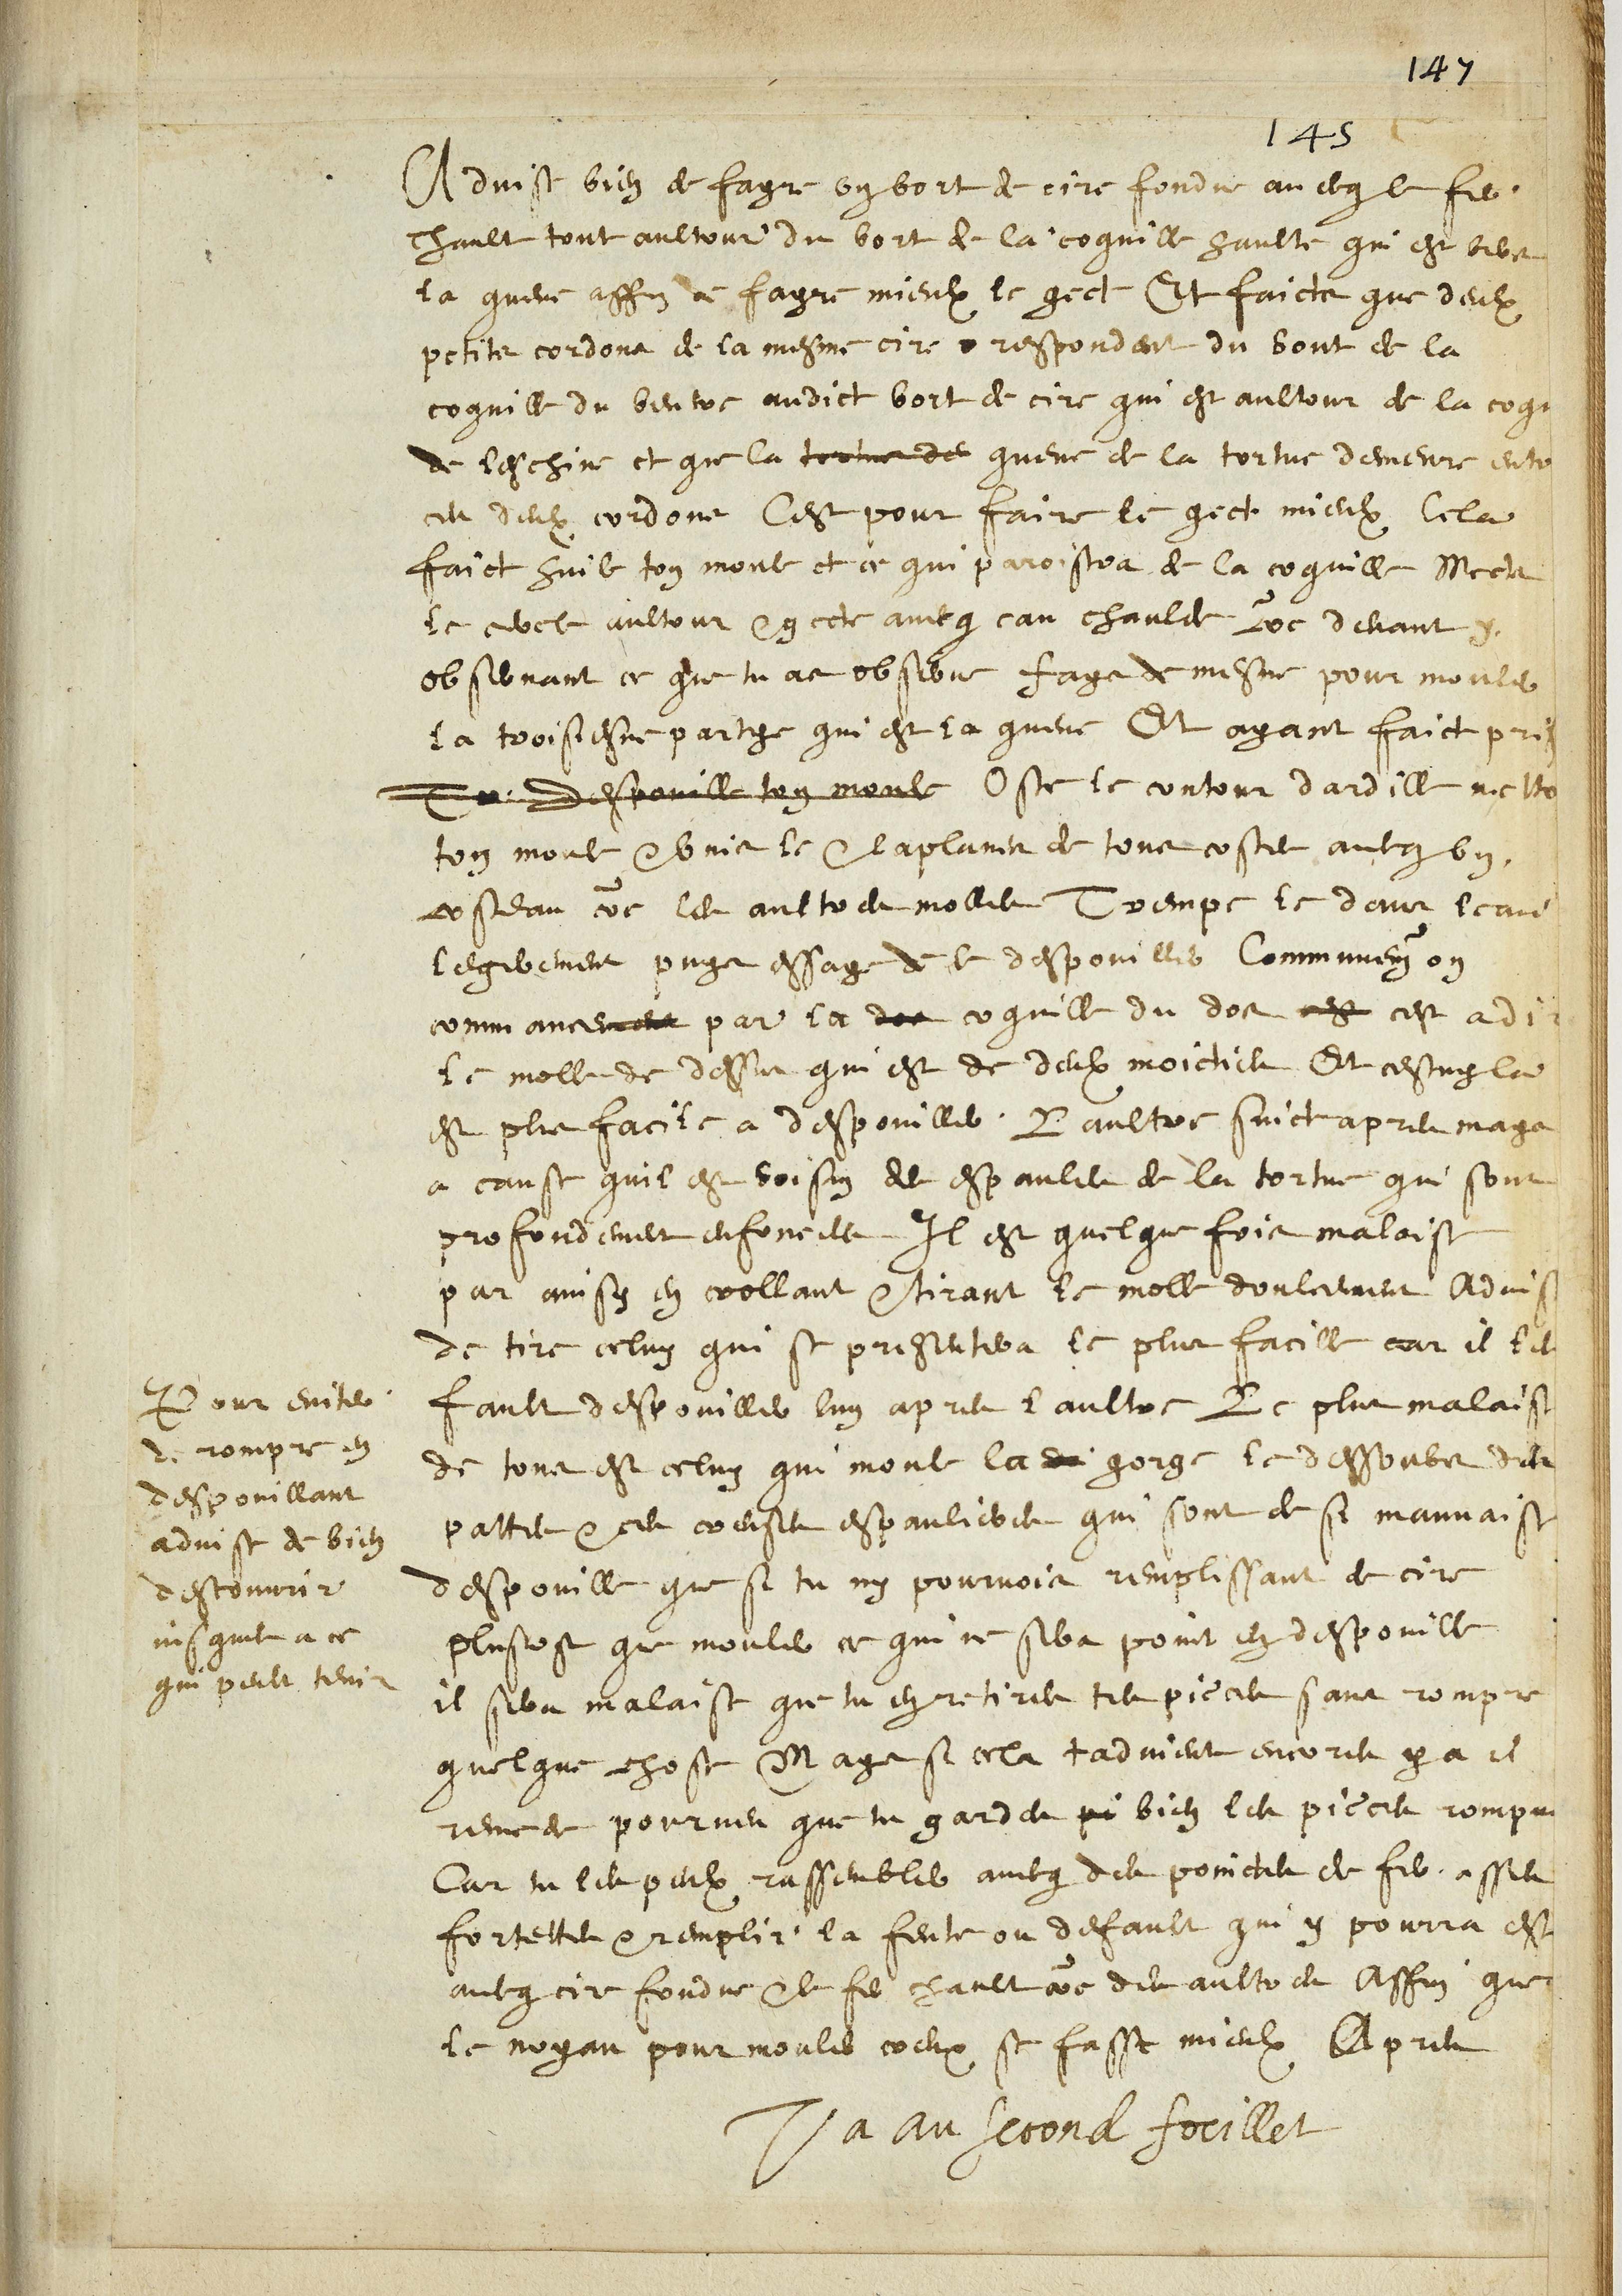 147
145
Advise bien de fayre un bort de cire fondue avecq le fer
chault tout aultour du bort de la coquille haulte qui est vers
la queue affin de fayre mieulx le gect Et faicts que deulx
petits cordons de la mesme cire respondent du bout de la
coquille du ventre audict bort de cire qui est aultour de la coqu
de leschine et que la tortue de queue de la tortue demeure entr
ces deulx cordons Cest pour faire le gect mieulx Cela
faict huile ton moule et ce qui paroistra de la coquille Mects
le cercle aultour & gecte avecq eau chaulde co͞e devant
observant ce que tu as observe Fays de mesme pour mouler
la troisiesme partye qui est la queue Et ayant faict pris
Tu despouille ton moule Oste le contour dardille nettoy
ton moule & unis le & laplanis de tous costes avecq un
costeau co͞e les aultres molles Trempe le dans leau
legerement puys essaye de le despouiller Communem on
commancement par la dos coquille du dos est cest a dir
le molle de dessus qui est de deulx moicties Et cestuy la
est plus facile a despouiller Laultre suict apres mays
a cause quil est voisin des espaules de la tortue qui sont
profondement enfoncees Il est quelque fois malaise
par ainsy en crollant & tirant le molle doulcement Advise
de tire celuy qui se presentera le plus facille car il les
fault despouiller luy apres laultre Le plus malaise
de tous est celuy qui moule la gorge le dessoubs des
pattes & ces creuses espaulieres qui sont de si mauvaise
despouille que si tu ny pourvois remplissant de cire
plustost que mouler ce qui ne sera point en despouille
il sera malaise que tu en retires tes pieces sans rompre
quelque chose Mays si cela tadvient encores y a il
remede pourveu que tu gardes bien les pieces rompu
Car tu les peulx rassembler avecq des poinctes de fer asses
fortettes & remplir la fente ou default qui y pourra est
avecq cire fondue & le fer chault co͞e des aultres Affin que
le noyau pour mouler creux se fasse mieulx Apres
Va au second foeillet
Pour eviter
de rompre en
despouillant
advise de bien
descouvrir
jusques a ce
qui peult tenir